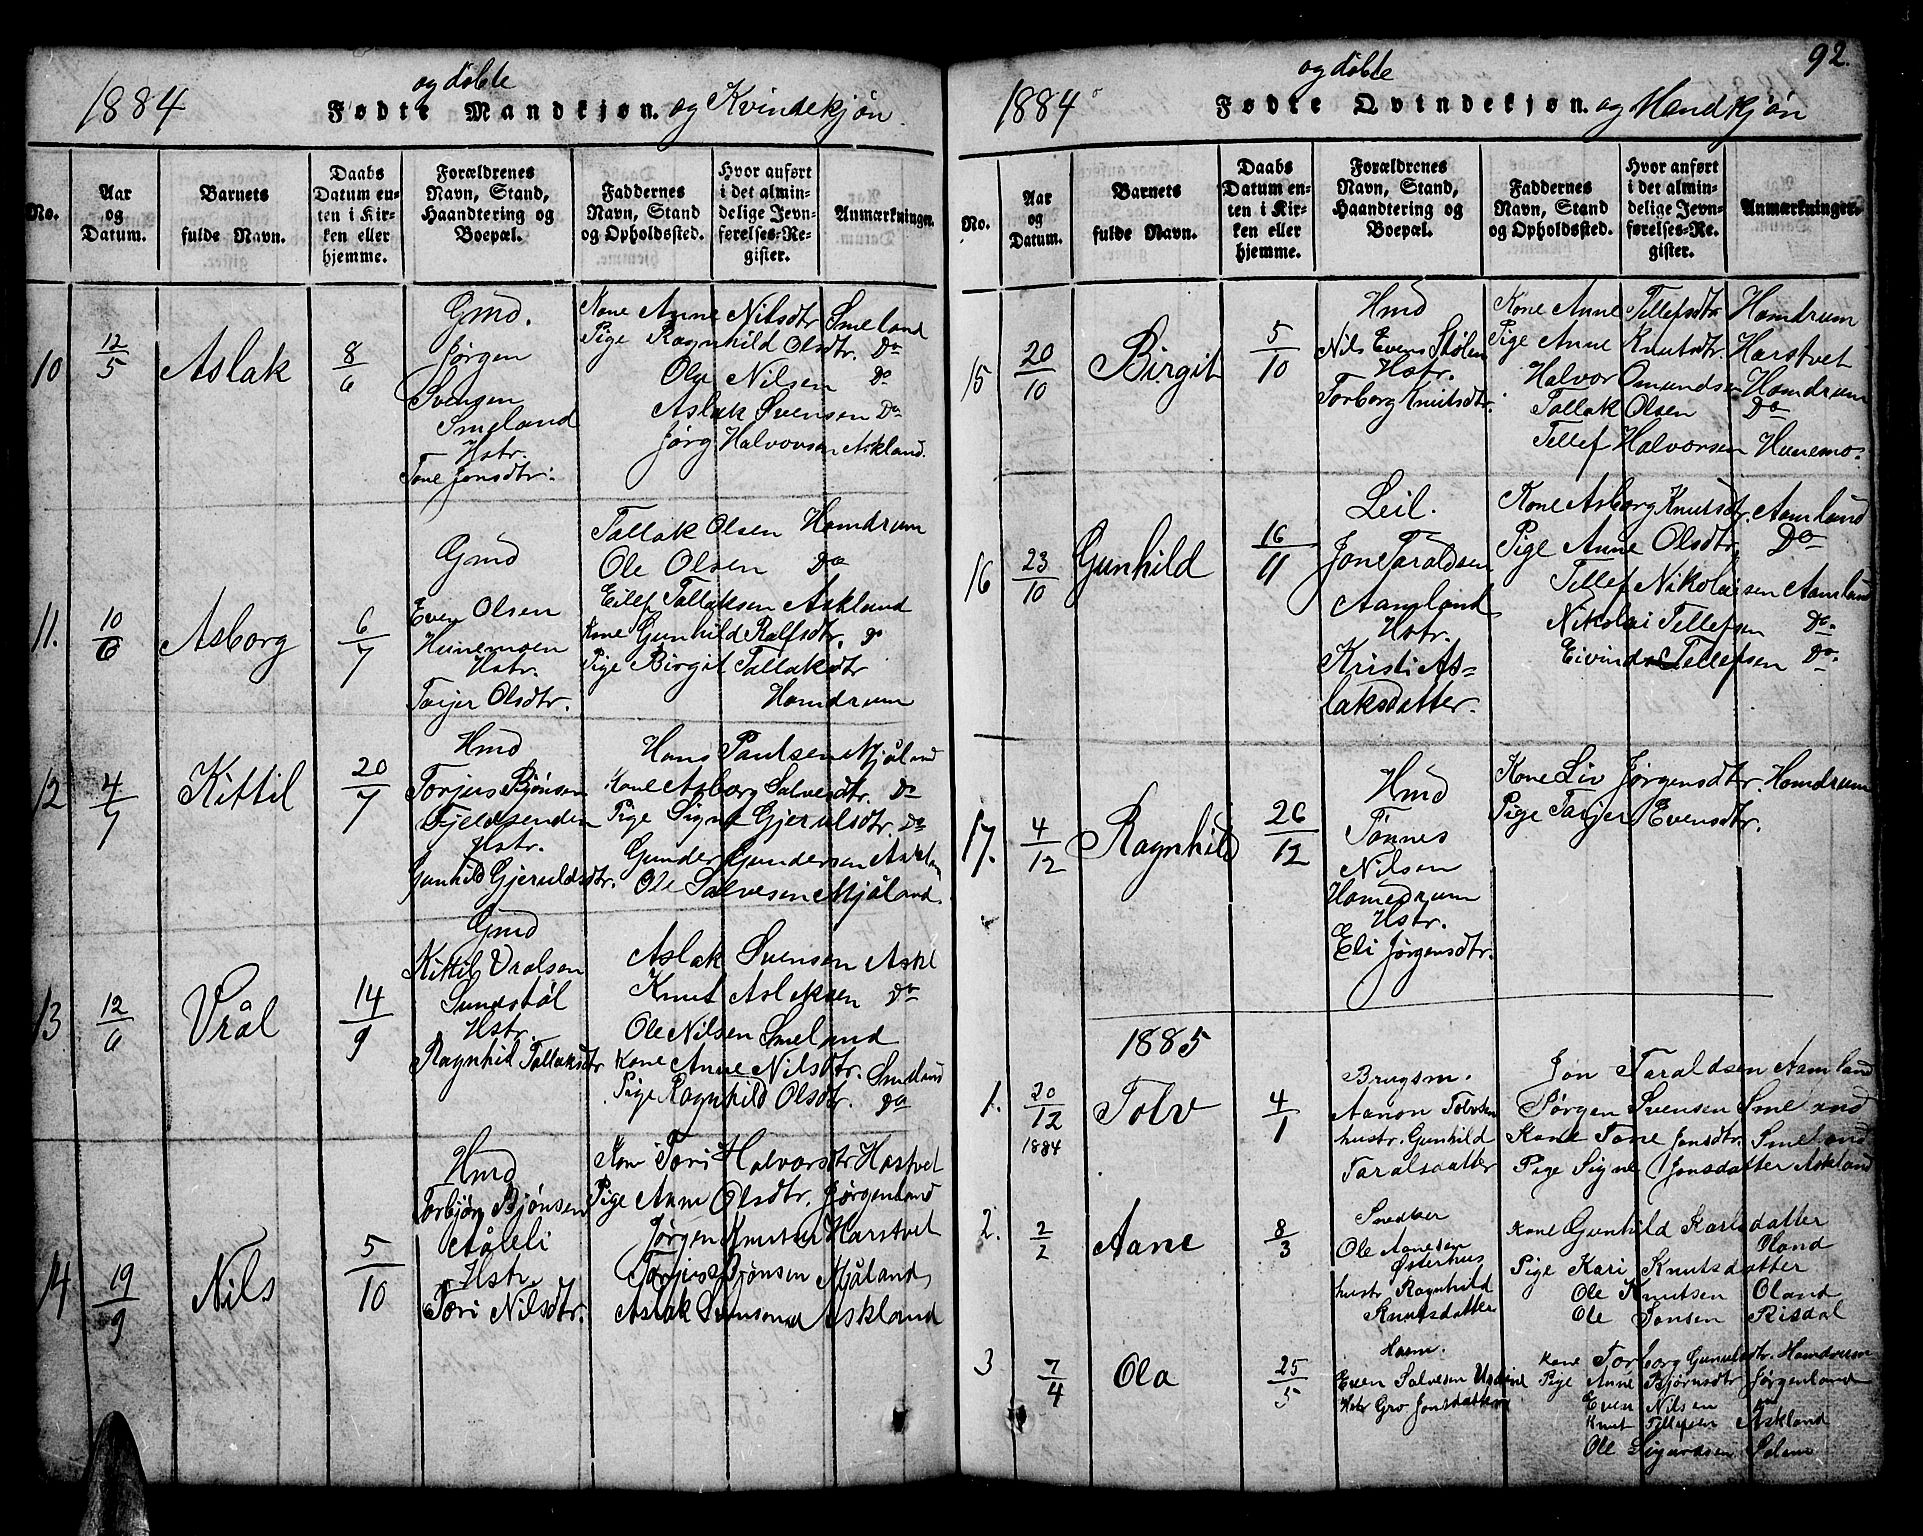 1884
og döbte
Fødte Mandkjøn. og Kvindekjøn.
No.
Aar og Datum.
Barnets fulde Navn.
Daabs Datum enten i Kirken eller hjemme.
Forældrenes Navn, Stand, Haandtering og Boepæl.
Faddernes Navn, Stand og Opholdssted.
Hvor anført i det almindelige Jevnførelses-Register.
Anmærkninger.
10
12/5
Aslak
8/6
Gmd.
Jørgen
Svensen
Smeland
Hstr.
Tone Jonsdtr.
Kone Anne Nilsdtr Smeland
Pige Ragnhild Olsdtr. Do
Ole Nilsen Do
Aslak Svensen Do
Jörg Halvorsen Askland.
11.
10/6
Asborg
6/7
Gmd
Even Olsen
Heinemoen
Hstr.
Tarjer Olsdtr.
Tallak Olsen Homdrum
Ole Olsen Do
Eilef Tallaksen Askland
Kone Gunhild Rolfsdtr. do
Pige Birgit Tallaksdtr
Homdrum
12
4/7
Kittil
20/7
Hmd
Torjus Bjönsen
Fjeldsenden
Hstr.
Gunhild Gjeruldsdtr.
Hans Paulsen Mjåland
Kone Asborg Salvesdtr. Do
Pige Signe Gjerulsdtr. Do
Gunder Gundersen Askland
Ole Salvesen Mjåland.
13
12/6
Vrål
14/9
Gmd
Kittil Vralsen
Sundstöl
Hstr.
Ragnhil Tallaksdtr
Aslak Svensen Askl
Knut Aslaksen Do
Ole Nilsen Smeland
Kone Anne Nilsdtr. Smeland
Pige Ragnhild Olsdtr. Do
14
19/9
Nils
5/10
Hmd
Torbjörn Bjönsen
Åleli
Hstr.
Tori Nilsdtr.
Kone Tori Halvorsdtr Hastvet
Pige Anne Olsdtr. Jörgenland
Jörgen Knutsen Harstvet
Torjus Bjönsen Mjåland
Aslak Svenson Askland
92.
1884
og döbte
Fødte Qvindekjøn. og Mandkjøn
No.
Aar og Datum.
Barnets fulde Navn.
Daabs Datum enten i Kirken eller hjemme.
Forældrenes Navn, Stand, Haandtering og Boepæl.
Faddernes Navn, Stand og Opholdssted.
Hvor anført i det almindelige Jevnførelses-Register.
Anmærkninger.
15
20/10
Birgit
5/10
Hmd
Nils Evens Stølen
Hstr.
Torborg Knutsdtr.
Kone Anne Tellefsdtr Homdrum
Pige Anne Knutsdtr. Harstvet
Halvor Omundsen Homdrum
Tallak Olsen Do
Tellef Halvorsen Hunemo.
16
23/10
Gunhild
16/11
Leil.
Jon Taraldsen
Aamland
Hstr.
Kristi As=
laksdatter.
Kone Asborg Knutsdtr. Aamland
Pige Anne Olsdtr. Do
Tellef Nikolaisen Aamland
Nikolai Tellefsen Do.
Eivind Tellefsen Do.
17.
4/12
Ragnhild
26/12
Hmd
Tönnes
Nilsen
Homedrum
Hstr.
Eli Jörgensdtr.
Kone Liv Jörgensdtr. Homdrum
Pige Tarjer Evensdtr.
1885
1.
20/12
1884
Tolv
4/1
Brugsm.
Aanon Tolvsen
hustr. Gunhild
Taralsdatter
Jon Taraldsen Aamland
Jörgen Svensen Smeland
Kone Tone Jonsdtr. Smeland
Pige Signe Jonsdatter Askland
2.
2/2
Aane
8/3
Snedker
Ole Aanesen
Østerhus
hustr. Ragnhild
Knutsdatter
Kone Gunhild Karlsdatter
Oland
Pige Kari Knutsdatter
Ole Knutsen Oland
Ole Jonsen Risdal
3
7/4
Ola
25/5
Husm.
Even Salvesen
Hstr Gro Jonsdatter
Kone Torborg Gunulsdtr. Homdrum
Pige Anne Björnsdtr Jørgenland
Even Nilsen Do
Knut Tellefsen Askland
Ole Sigurdsen